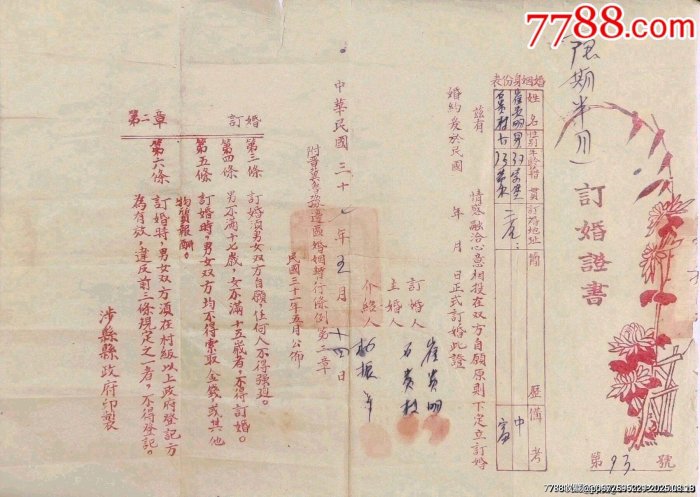 7788.com
限期半月
訂婚證書
第93號
婚姻身份表
姓名 性別 年齡 籍貫 訂婚地址 簡歷 備考
崔貴明 男
石貴枝 女
中
茲有 情感融洽心意相投在双方自願原則下定立訂婚
婚約爰於民國 年 月 日正式訂婚此證
訂婚人 崔貴明
石貴枝
主婚人
介紹人
中華民國三十 年五月十四日
附晉冀魯豫邊區婚姻暫行條例第二章
民國三十一年五月公佈
第二章 訂婚
第三條 訂婚須男女双方自願任何人不得強迫。
第四條 男不滿十七歲,女不滿十五歲者,不得訂婚。
第五條 訂婚時,男女双方均不得索取金錢,或其他
物質報酬。
第六條 訂婚時,男女双方須在村級以上政府登記方
為有效,違反前三條規定之一者,不得登記。
涉縣縣政府印製